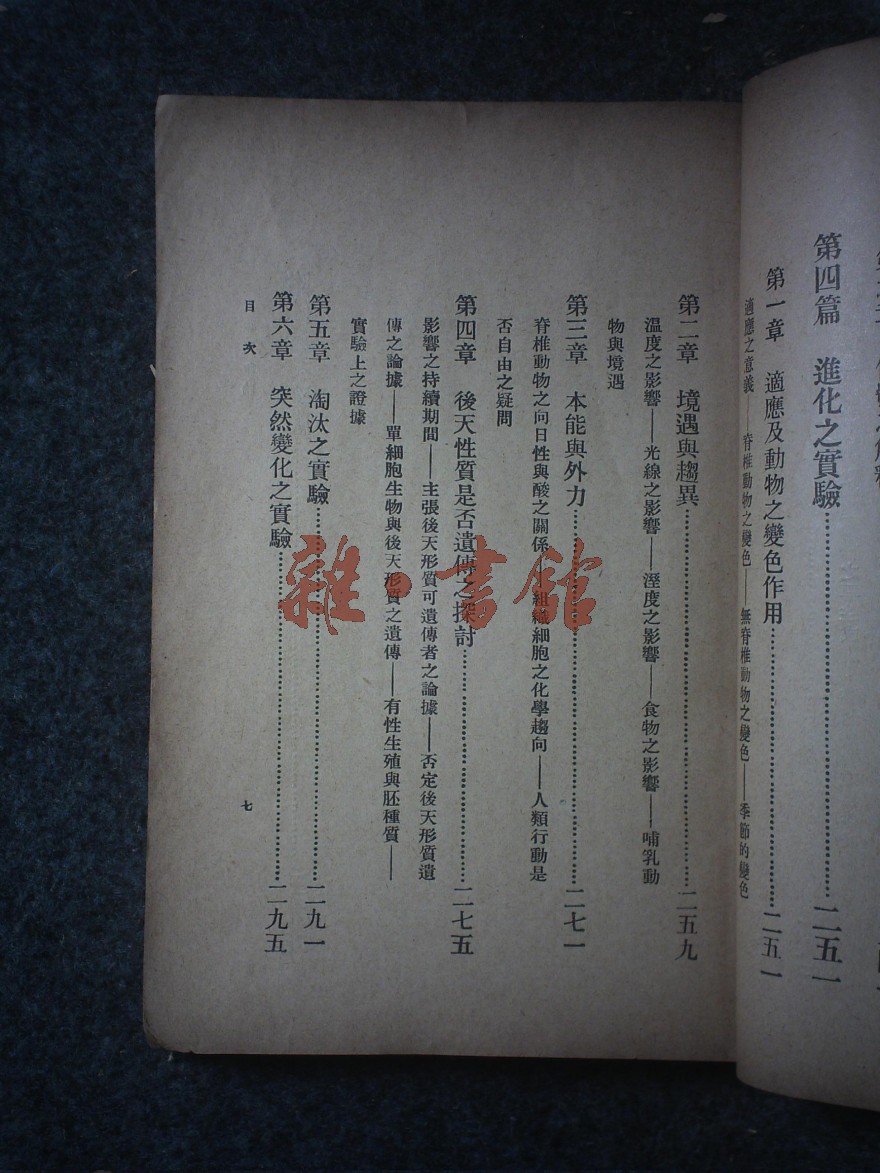 第四篇　進化之實驗……二五一
第一章　適應及動物之變色作用……二五一
適應之意義——脊椎動物之變色——無脊椎動物之變色——季節的變色
第二章　境遇與趨異……二五九
溫度之影響——光線之影響——溼度之影響——食物之影響——哺乳動
物與境遇
第三章　本能與外力……二七一
脊椎動物之向日性與酸之關係——組織細胞之化學趨向——人類行動是
否自由之疑問
第四章　後天性質是否遺傳之探討……二七五
影響之持續期間——主張後天形質可遺傳者之論據——否定後天形質遺
傳之論據——單細胞生物與後天形質之遺傳——有性生殖與胚種質——
實驗上之證據
第五章　淘汰之實驗……二九一
第六章　突然變化之實驗……二九五
目次
七
雜書館